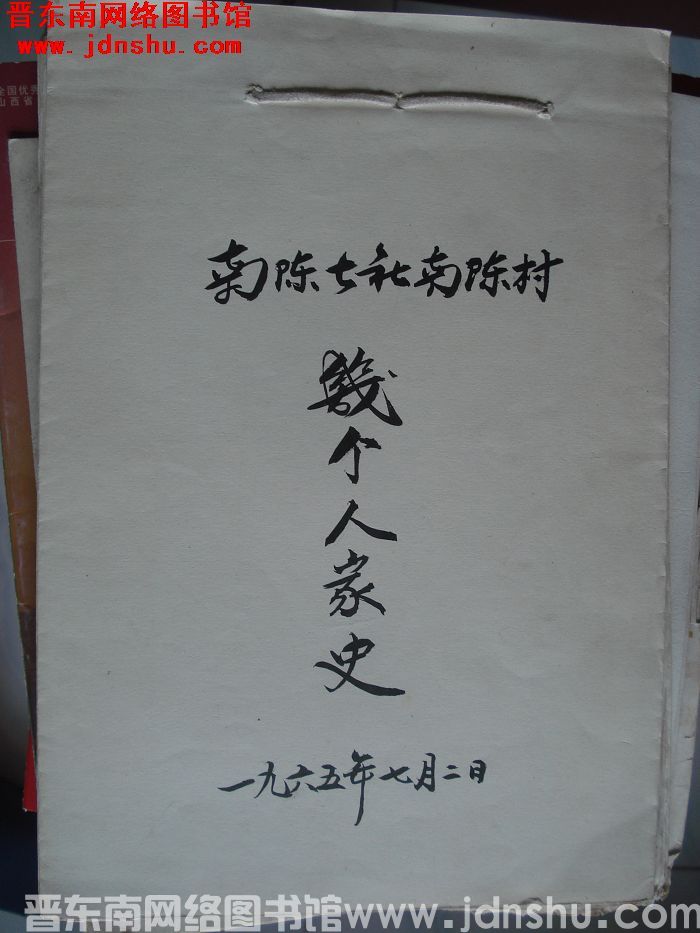 晋东南网络图书馆
www.jdnshu.com
全国优秀
山西省
南陈公社南陈村
幾个人家史
一九六五年七月二日
晋东南网络图书馆www.jdnshu.com